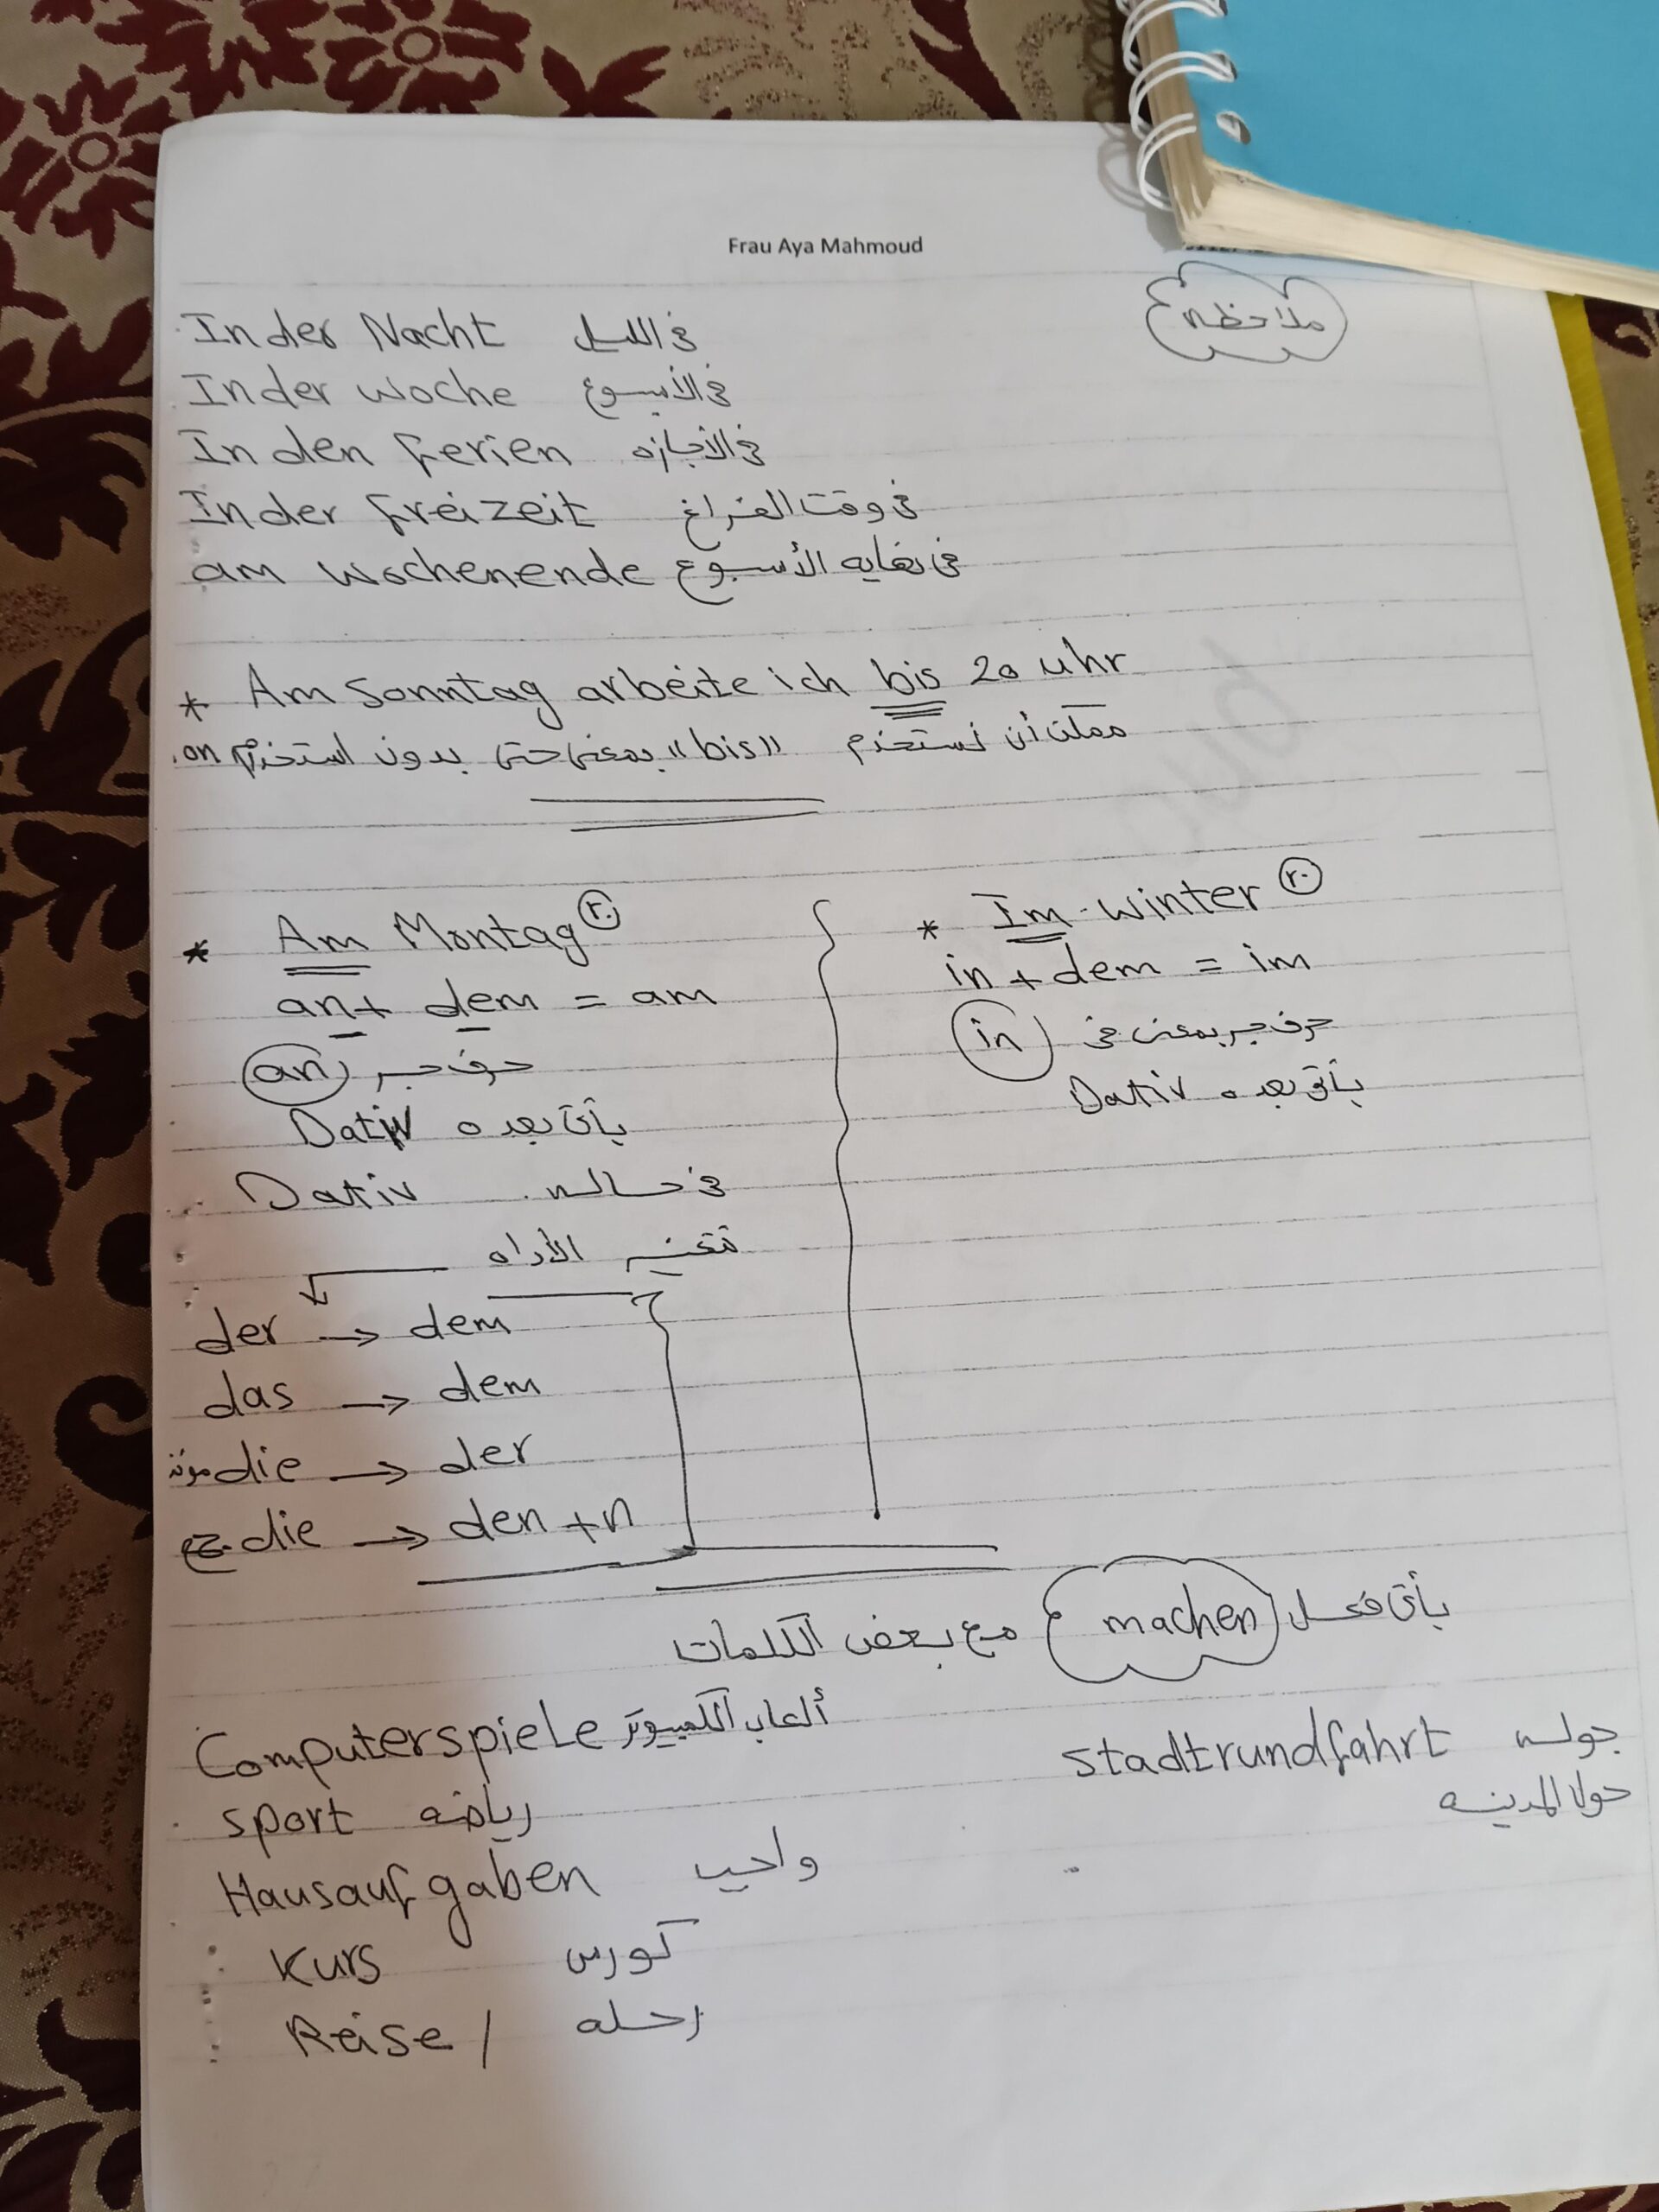 Frau Aya Mahmoud
ملاحظه
In der Nacht في الليل
In der Woche في الأسبوع
In den Ferien في الأجازه
In der Freizeit في وقت الفراغ
am Wochenende في نهايه الأسبوع
* Am Sonntag arbeite ich bis 20 uhr
ممكن أن نستخدم "bis" بمعنى حتى بدون استخدام on.
* Am Montag r.
an + dem = am
an حرف جر
يأتي بعده Dativ
في حاله Dativ
تتغير الأداه
der → dem
das → dem
مؤنث die → der
جمع die → den + n
* Im Winter r.
in + dem = im
in حرف جر بمعنى في
يأتي بعده Dativ
يأتي فعل machen مع بعض الكلمات
Computerspiele ألعاب الكمبيوتر
Sport رياضه
Hausaufgaben واجب
Kurs كورس
Reise / رحله
Stadtrundfahrt جوله
حول المدينه